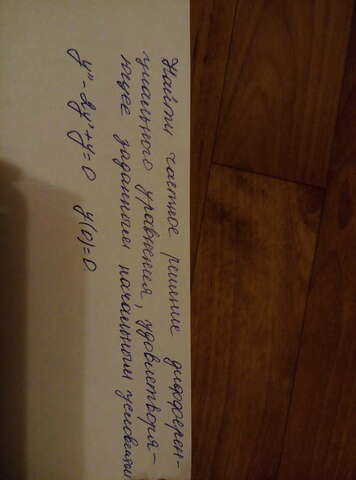 Найти частное решение дифферен-
циального уравнения, удовлетворя-
ющее заданным начальным условиям
y"-2y'+y=0 y(0)=0